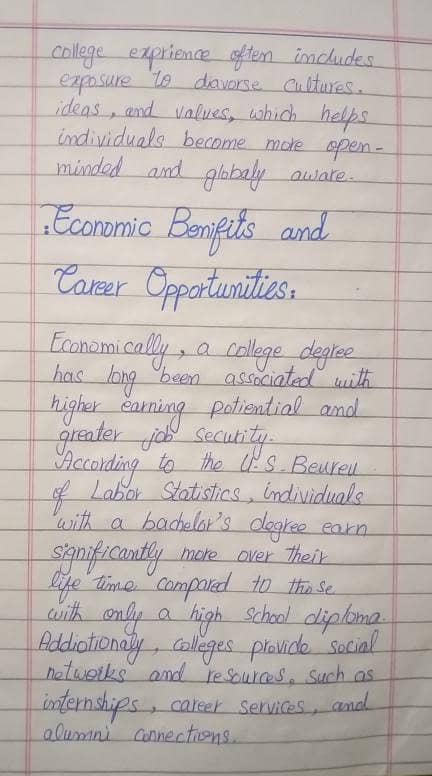 college exprience often includes
exposure to diavorse cultures.
ideas, and values, which helps
individuals become more open-
minded and globaly aware.
:Economic Benifits and
Career Opportunities:
Economically, a college degree
has long been associated with
higher earning potiential and
greater job security.
According to the U.S. Beureu
of Labor Statistics, individuals
with a bachelor's degree earn
significantly more over their
life time compared to those
with only a high school diploma.
Addiotionaly, colleges provide social
networks and resources, such as
internships, career services, and
alumni connections.